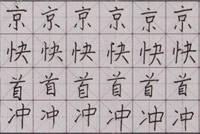 京京京京京京
快快快快快快
首首首首首首
冲冲冲冲冲冲